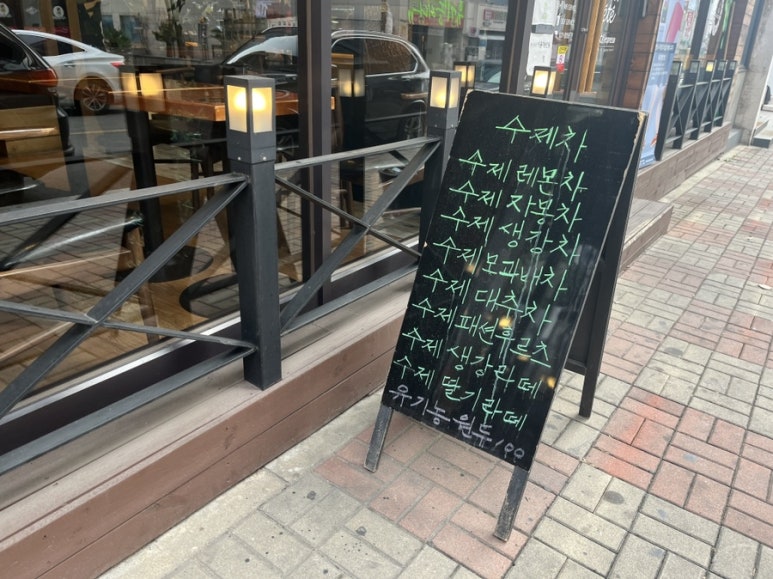 수제차
수제 레몬차
수제 자몽차
수제 생강차
수제 모과배차
수제 대추차
수제 패션후르츠
수제 생강라떼
수제 딸기라떼
유기농 원두 100